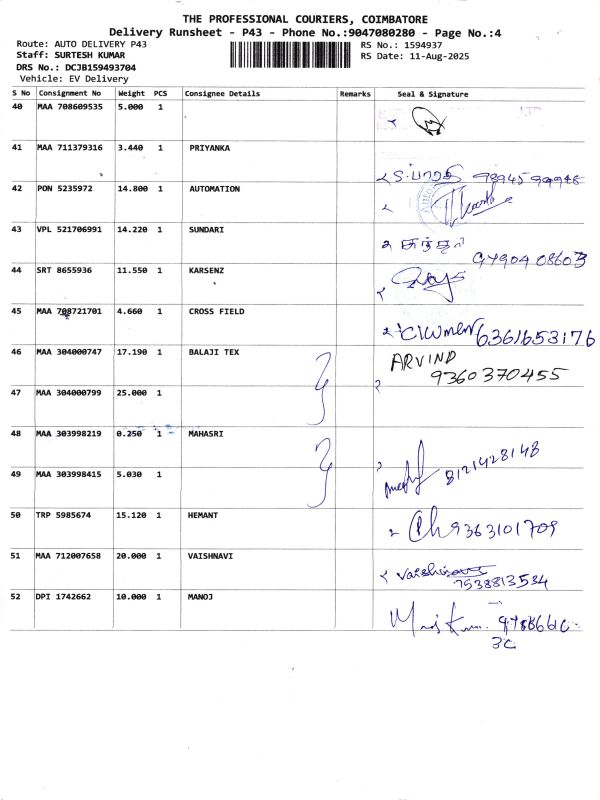 THE PROFESSIONAL COURIERS, COIMBATORE
Delivery Runsheet - P43 - Phone No.:9047080280 - Page No.:4
Route: AUTO DELIVERY P43
RS No.: 1594937
Staff: SURTESH KUMAR
RS Date: 11-Aug-2025
DRS No.: DCJB159493704
Vehicle: EV Delivery
S No Consignment No Weight PCS Consignee Details Remarks Seal & Signature
40 MAA 708609535 5.000 1
LTD
41 MAA 711379316 3.440 1 PRIYANKA
S. பாரதி
42 PON 5235972 14.800 1 AUTOMATION
43 VPL 521706991 14.220 1 SUNDARI
சுந்தரி
97904 08603
44 SRT 8655936 11.550 1 KARSENZ
45 MAA 708721701 4.660 1 CROSS FIELD
6361653176
46 MAA 304000747 17.190 1 BALAJI TEX
ARVIND
9360370455
47 MAA 304000799 25.000 1
48 MAA 303998219 0.250 1 MAHASRI
8121428148
49 MAA 303998415 5.030 1
50 TRP 5985674 15.120 1 HEMANT
9363101709
51 MAA 712007658 20.000 1 VAISHNAVI
Vaishnavi
7538813534
52 DPI 1742662 10.000 1 MANOJ